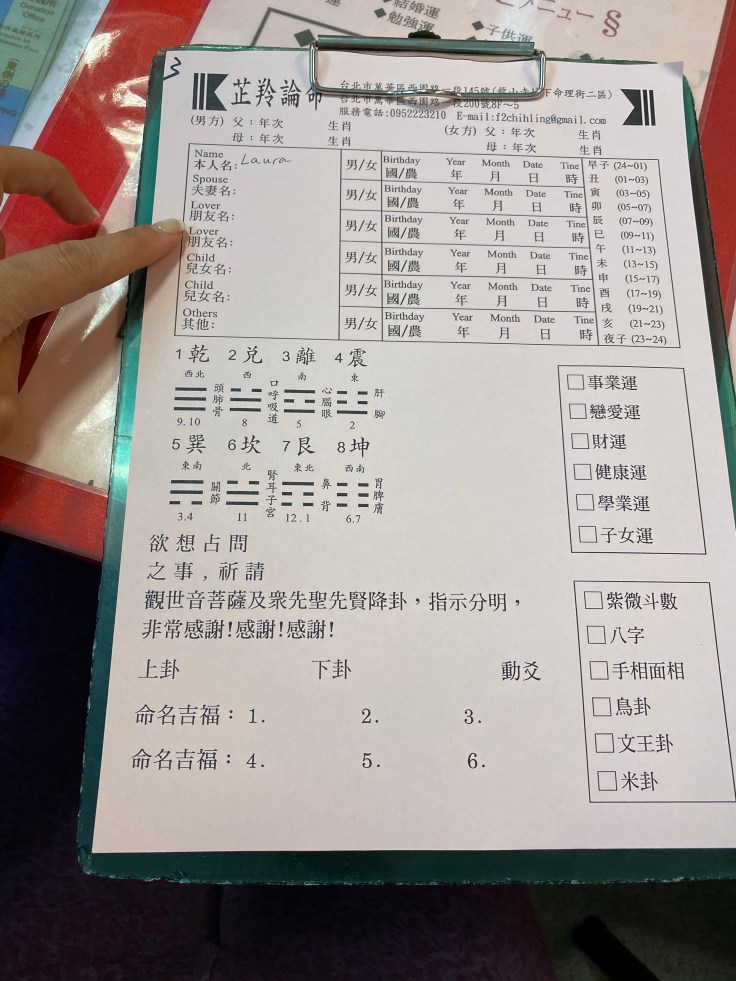 Donation
Office
結婚運
勉強運
子供運
メニュー §
3
芷羚論命
台北市萬華區西園路一段145號(龍山寺地下命理街二區)
台北市萬華區西園路一段200號8F~5
服務電話:0952223210 E-mail:f2chihling@gmail.com
(男方) 父：年次 生肖 (女方) 父：年次 生肖
母：年次 生肖 母：年次 生肖
Name
本人名: Laura 男/女 Birthday 國/農 Year 年 Month 月 Date 日 Tine 時
Spouse
夫妻名: 男/女 Birthday 國/農 Year 年 Month 月 Date 日 Tine 時
Lover
朋友名: 男/女 Birthday 國/農 Year 年 Month 月 Date 日 Tine 時
Lover
朋友名: 男/女 Birthday 國/農 Year 年 Month 月 Date 日 Tine 時
Child
兒女名: 男/女 Birthday 國/農 Year 年 Month 月 Date 日 Tine 時
Child
兒女名: 男/女 Birthday 國/農 Year 年 Month 月 Date 日 Tine 時
Others
其他: 男/女 Birthday 國/農 Year 年 Month 月 Date 日 Tine 時
早子 (24~01)
丑 (01~03)
寅 (03~05)
卯 (05~07)
辰 (07~09)
巳 (09~11)
午 (11~13)
未 (13~15)
申 (15~17)
酉 (17~19)
戌 (19~21)
亥 (21~23)
夜子 (23~24)
1乾 2兌 3離 4震
西北 西 南 東
頭肺骨 口呼吸道 心腦眼 肝腳
9.10 8 5 2
5巽 6坎 7艮 8坤
東南 北 東北 西南
關節 腎耳子宮 鼻背 胃脾膚
3.4 11 12.1 6.7
事業運
戀愛運
財運
健康運
學業運
子女運
欲想占問
之事，祈請
觀世音菩薩及衆先聖先賢降卦，指示分明，
非常感謝!感謝!感謝!
上卦 下卦 動爻
命名吉福：1. 2. 3.
命名吉福：4. 5. 6.
紫微斗數
八字
手相面相
鳥卦
文王卦
米卦